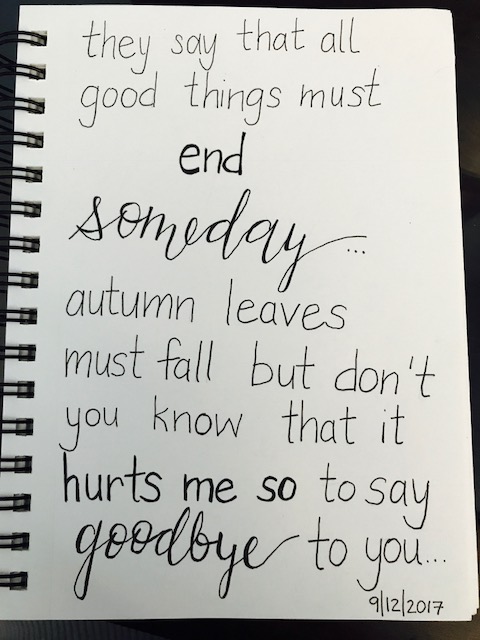 they say that all
good things must
end
someday...
autumn leaves
must fall but don't
you know that it
hurts me so to say
goodbye to you...
9/12/2017